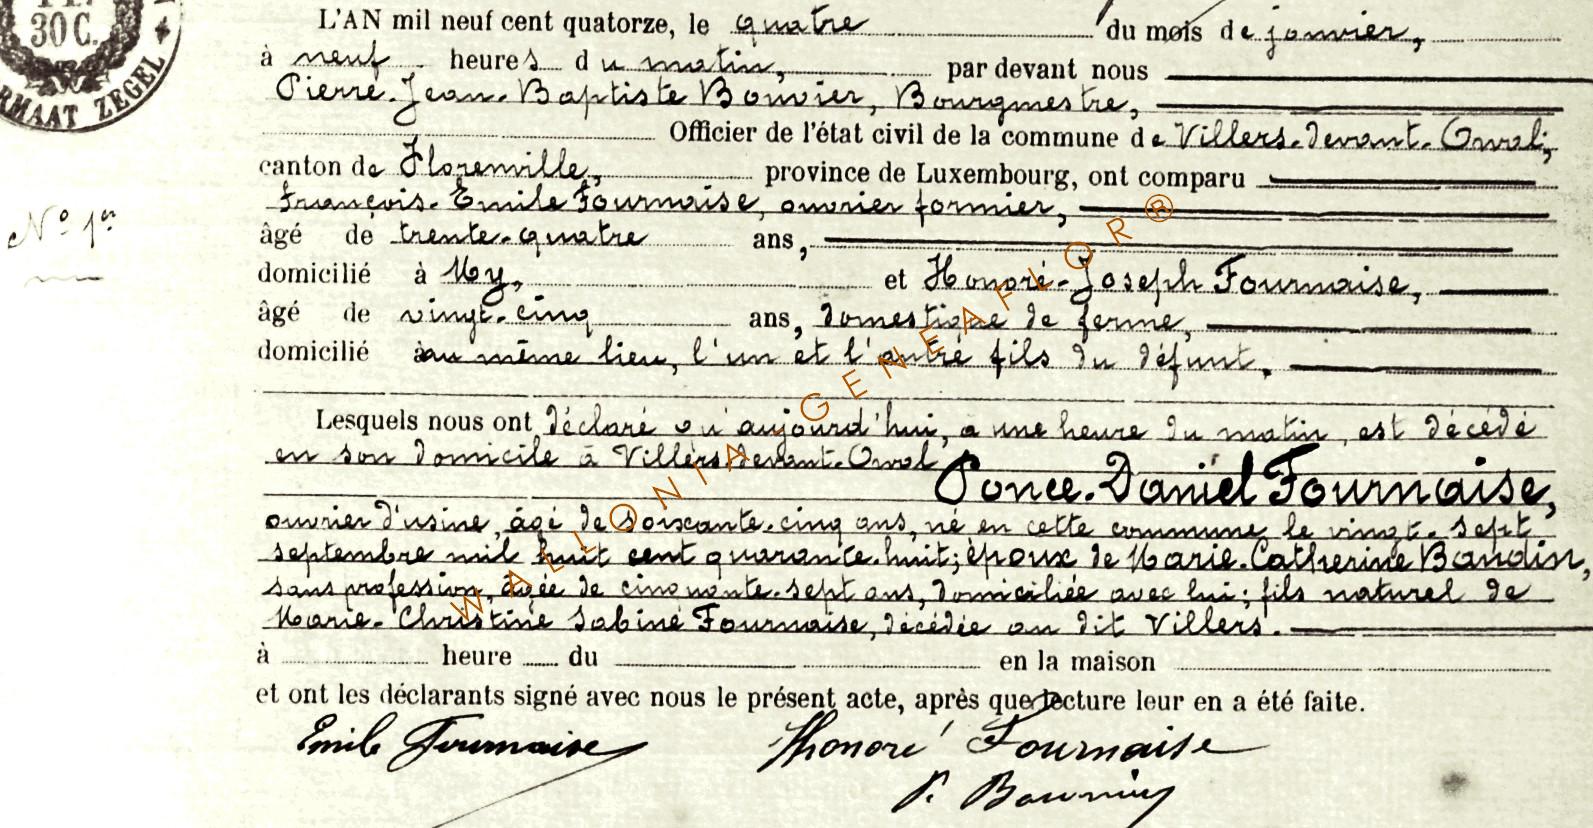 30 C.
RMAAT ZEGEL
L'AN mil neuf cent quatorze, le quatre du mois de janvier,
à neuf heures du matin, par devant nous
Pierre-Jean-Baptiste Bouvier, Bourgmestre,
Officier de l'état civil de la commune de Villers-devant-Orval,
canton de Florenville, province de Luxembourg, ont comparu
François-Emile Fournaise, ouvrier formier,
N° 1er
âgé de trente-quatre ans,
domicilié à My, et Honoré-Joseph Fournaise,
âgé de vingt-cinq ans, domestique de ferme,
domicilié au même lieu, l'un et l'autre fils du défunt.
Lesquels nous ont déclaré qu'aujourd'hui, à une heure du matin, est décédé
en son domicile à Villers-devant-Orval,
Ponce-Daniel Fournaise,
ouvrier d'usine, âgé de soixante-cinq ans, né en cette commune le vingt-sept
septembre mil huit cent quarante-huit; époux de Marie-Catherine Baudin,
sans profession, âgée de cinquante-sept ans, domiciliée avec lui; fils naturel de
Marie-Christine Sabine Fournaise, décédée au dit Villers.
à heure du en la maison
et ont les déclarants signé avec nous le présent acte, après que lecture leur en a été faite.
Emile Fournaise Honoré Fournaise
WALLONIA GENEAFLOR®